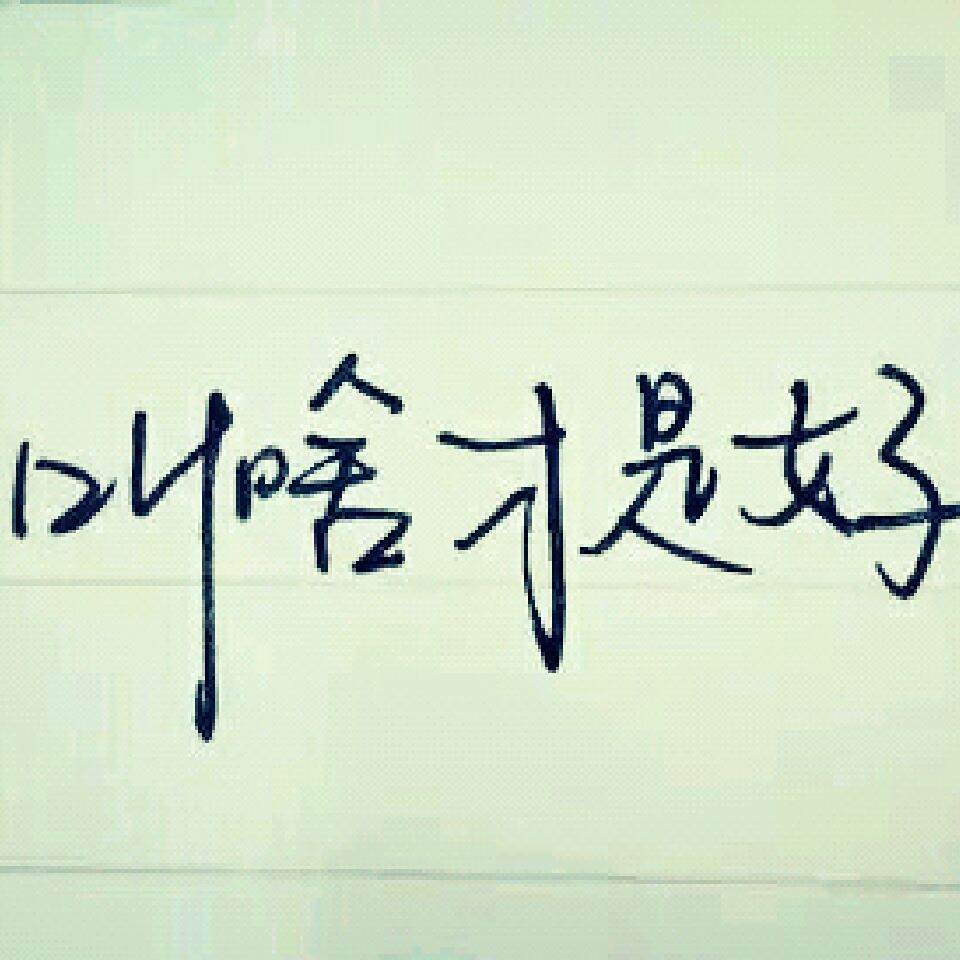 叫啥才是好